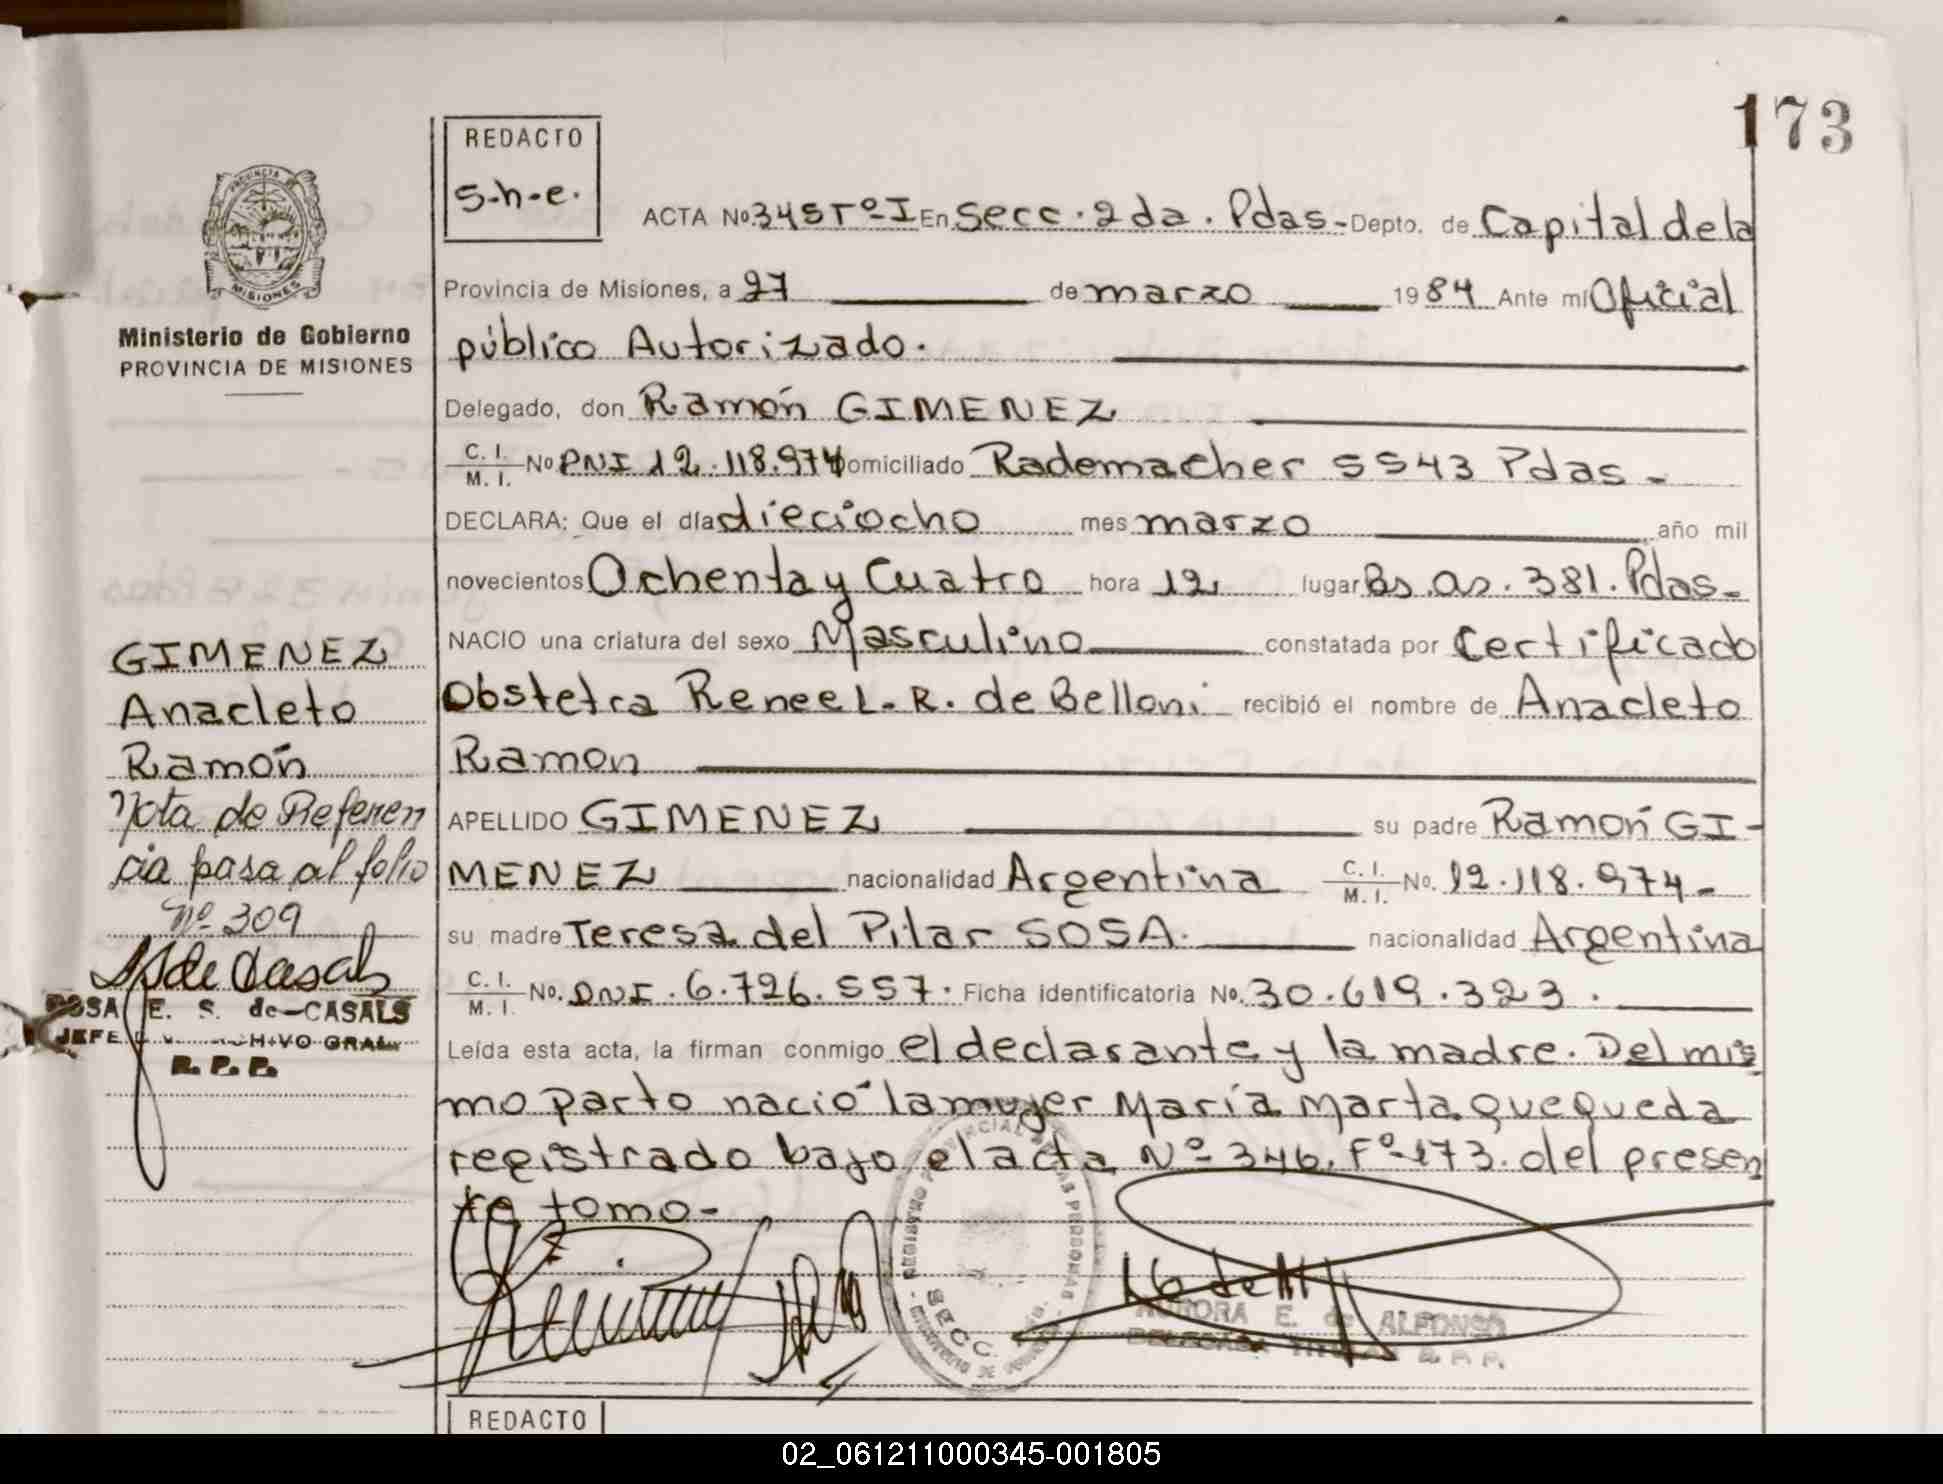 173
REDACTO
S-h-e.
ACTA No. 345 Tº-I En Secc. 2da. Pdas- Depto. de Capital de la
Provincia de Misiones, a 27 de marzo 1984 Ante mí Oficial
público Autorizado.
Delegado, don Ramón GIMENEZ
C. I. M. I. No DNI 12.118.974 Domiciliado Rademacher 5543 Pdas-
DECLARA: Que el día dieciocho mes marzo año mil
novecientos Ochenta y Cuatro hora 12 lugar Bs. as. 381. Pdas-
NACIO una criatura del sexo Masculino constatada por Certificado
Obstetra Renee L. R. de Belloni recibió el nombre de Anacleto
Ramon
APELLIDO GIMENEZ su padre Ramón GI-
MENEZ nacionalidad Argentina C. I. M. I. No. 12.118.974-
su madre Teresa del Pilar SOSA. nacionalidad Argentina
C. I. M. I. No. DNI. 6.726.557. Ficha identificatoria No. 30.619.323.
Leída esta acta, la firman conmigo el declarante y la madre. Del mis
mo parto nació la mujer María Marta que queda
registrado bajo el acta Nº 346. Fº 173. del presen
te tomo-
PROVINCIA
MISIONES
Ministerio de Gobierno
PROVINCIA DE MISIONES
GIMENEZ
Anacleto
Ramón
Nota de Referen
cia pasa al folio
Nº 309
ROSA E. S. de CASALS
JEFE ARCHIVO GRAL.
R. P. P.
REGISTRO PROVINCIAL DE LAS PERSONAS
SECC.
AURORA E. de ALFONSO
DELEGADA TITULAR R. P. P.
REDACTO
02_061211000345-001805